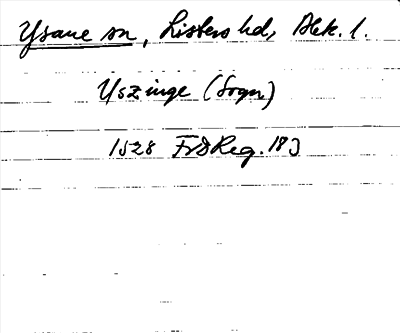 Ysane sn, Listers hd, Blek. l.
Yszinge (Sogn)
1528 FrdReg. 183